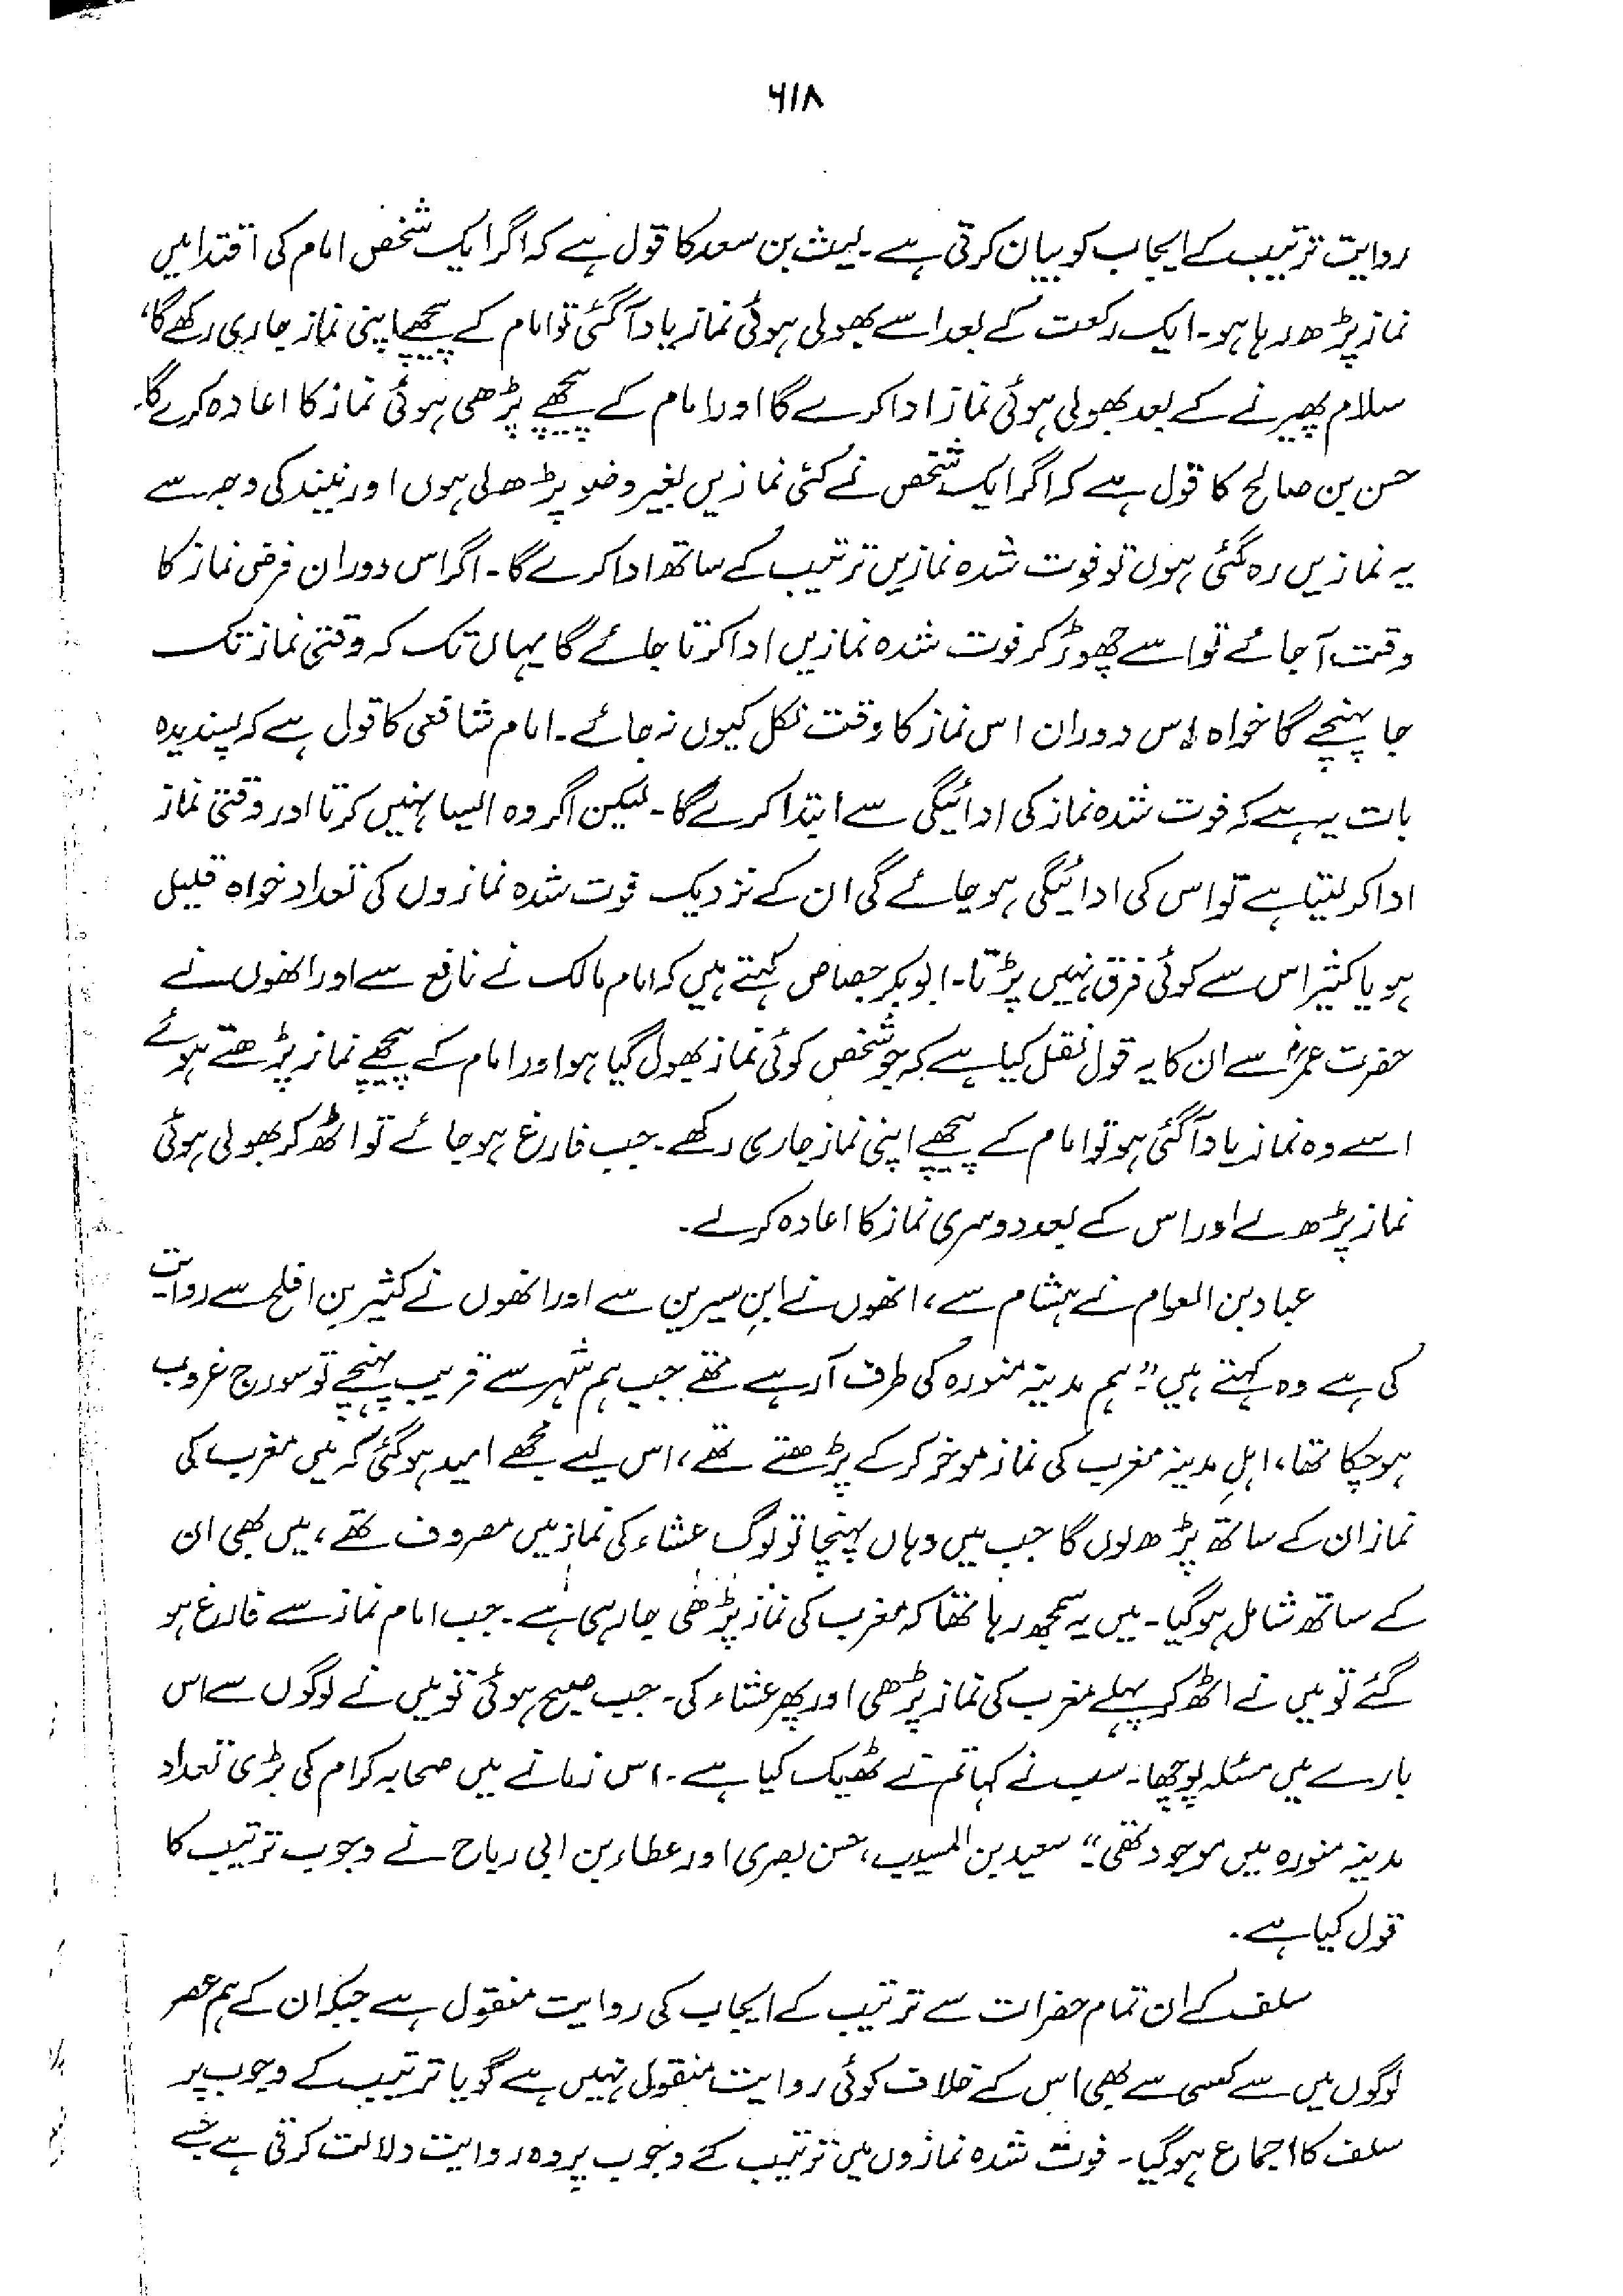 ۶۱۸
روایت ترتیب کے ایجاب کو بیان کرتی ہے۔ لیث بن سعد کا قول ہے کہ اگر ایک شخص امام کی اقتدا میں
نماز پڑھ رہا ہو۔ ایک رکعت کے بعد اسے بھولی ہوئی نماز یاد آگئی تو امام کے پیچھے اپنی نماز جاری رکھے گا،
سلام پھیرنے کے بعد بھولی ہوئی نماز ادا کرے گا اور امام کے پیچھے پڑھی ہوئی نماز کا اعادہ کرے گا۔
حسن بن صالح کا قول ہے کہ اگر ایک شخص نے کئی نمازیں بغیر وضو پڑھ لی ہوں اور نیند کی وجہ سے
یہ نمازیں رہ گئی ہوں تو فوت شدہ نمازیں ترتیب کے ساتھ ادا کرے گا۔ اگر اس دوران فرض نماز کا
وقت آجائے تو اسے چھوڑ کر فوت شدہ نمازیں ادا کرتا جائے گا یہاں تک کہ وقتی نماز تک
جا پہنچے گا خواہ اس دوران اس نماز کا وقت نکل کیوں نہ جائے۔ امام شافعی کا قول ہے کہ پسندیدہ
بات یہ ہے کہ فوت شدہ نماز کی ادائیگی سے ابتدا کرے گا۔ لیکن اگر وہ ایسا نہیں کرتا اور وقتی نماز
ادا کر لیتا ہے تو اس کی ادائیگی ہو جائے گی ان کے نزدیک فوت شدہ نمازوں کی تعداد خواہ قلیل
ہو یا کثیر اس سے کوئی فرق نہیں پڑتا۔ ابوبکر جصاص کہتے ہیں کہ امام مالک نے نافع سے اور انھوں نے
حضرت عمرؓ سے ان کا یہ قول نقل کیا ہے کہ جو شخص کوئی نماز بھول گیا ہو اور امام کے پیچھے نماز پڑھتے ہوئے
اسے وہ نماز یاد آگئی ہو تو امام کے پیچھے اپنی نماز جاری رکھے۔ جب فارغ ہو جائے تو اٹھ کر بھولی ہوئی
نماز پڑھ لے اور اس کے بعد دوسری نماز کا اعادہ کرلے۔
عباد بن العوام نے ہشام سے، انھوں نے ابنِ سیرین سے اور انھوں نے کثیر بن افلح سے روایت
کی ہے وہ کہتے ہیں :"ہم مدینہ منورہ کی طرف آرہے تھے جب ہم شہر سے قریب پہنچے تو سورج غروب
ہو چکا تھا، اہلِ مدینہ مغرب کی نماز موخر کر کے پڑھتے تھے، اس لیے مجھے امید ہو گئی کہ میں مغرب کی
نماز ان کے ساتھ پڑھ لوں گا جب میں وہاں پہنچا تو لوگ عشاء کی نماز میں مصروف تھے، میں بھی ان
کے ساتھ شامل ہو گیا۔ میں یہ سمجھ رہا تھا کہ مغرب کی نماز پڑھی جا رہی ہے۔ جب امام نماز سے فارغ ہو
گئے تو میں نے اٹھ کر پہلے مغرب کی نماز پڑھی اور پھر عشاء کی۔ جب صبح ہوئی تو میں نے لوگوں سے اس
بارے میں مسئلہ پوچھا۔ سب نے کہا تم نے ٹھیک کیا ہے۔ اس زمانے میں صحابہ کرام کی بڑی تعداد
مدینہ منورہ میں موجود تھی"۔ سعید بن المسیب، حسن بصری اور عطاء بن ابی رباح نے وجوب ترتیب کا
قول کیا ہے۔
سلف کے ان تمام حضرات سے ترتیب کے ایجاب کی روایت منقول ہے جبکہ ان کے ہم عصر
لوگوں میں سے کسی سے بھی اس کے خلاف کوئی روایت منقول نہیں ہے گویا ترتیب کے وجوب پر
سلف کا اجماع ہو گیا۔ فوت شدہ نمازوں میں ترتیب کے وجوب پر وہ روایت دلالت کرتی ہے جسے